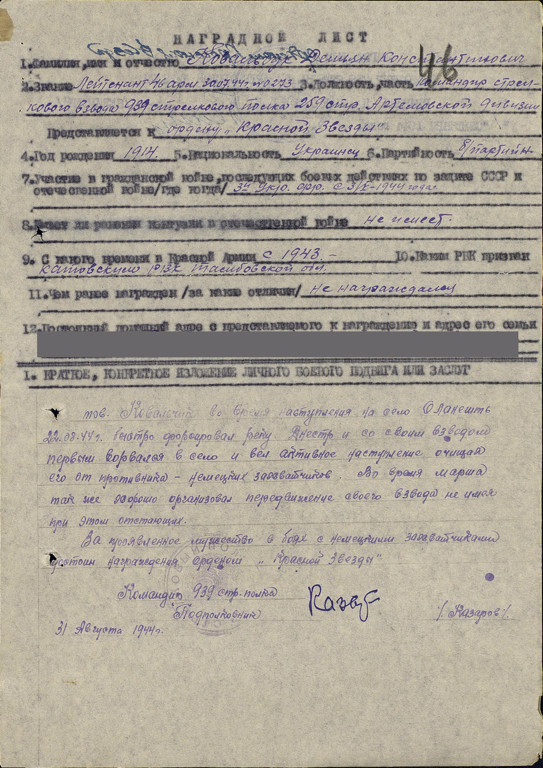 НАГРАДНОЙ ЛИСТ
46
1. Фамилия, имя и отчество Ковальчук Демьян Константинович
2. Звание Лейтенант 3. Должность, часть Командир стрел-
кового взвода 939 стрелкового полка Артемовской дивизии
Представляется к ордену „Красной Звезды"
4. Год рождения 1914. 5. Национальность Украинец 6. Партийность
7. Участие в гражданской войне, последующих боевых действиях по защите СССР и
отечественной войне /где когда/ 3й Укр. фр. с 1944 года
8. Имеет ли ранения контузии в отечественной войне не имеет.
9. С какого времени в Красной Армии с 1943. - 10. Каким РВК призван
РВК обл.
11. Чем ранее награжден /за какие отличия/ не награждался
12. Постоянный домашний адрес представляемого к награждению и адрес его семьи
1. КРАТКОЕ, КОНКРЕТНОЕ ИЗЛОЖЕНИЕ ЛИЧНОГО БОЕВОГО ПОДВИГА ИЛИ ЗАСЛУГ
тов. Ковальчук во время наступления на село Оланешть
22.08.44г. быстро форсировал реку Днестр и со своим взводом
первым ворвался в село и вел активное наступление, очищая
его от противника – немецких захватчиков. Во время марша
так же хорошо организовал передвижение своего взвода не имея
при этом отстающих.
За проявленное мужество в боях с немецкими захватчиками
достоин награждения орденом „Красной Звезды"
Командир 939 стр. полка
Подполковник
/Казаров/
31 Августа 1944г.